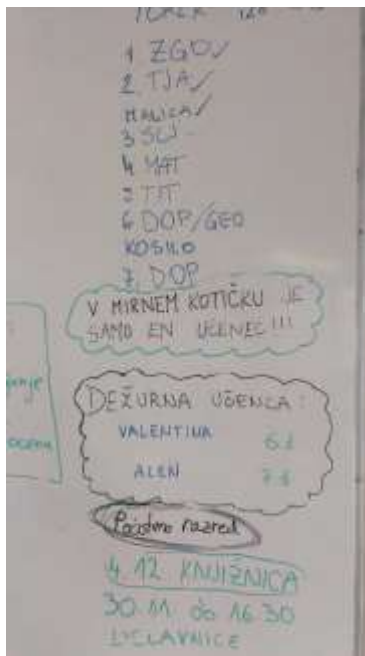 TOREK
1 ZGO✓
2 TJA✓
MALICA✓
3 SLJ
4 MAT
5 TIT
6 DOP/GEO
KOSILO
7 DOP
V MIRNEM KOTIČKU JE
SAMO EN UČENEC!!!
DEŽURNA UČENCA:
VALENTINA
ALEN
Pocistimo razred
4.12. KNJIŽNICA
30.11. do 16.30
DELAVNICE
ocena